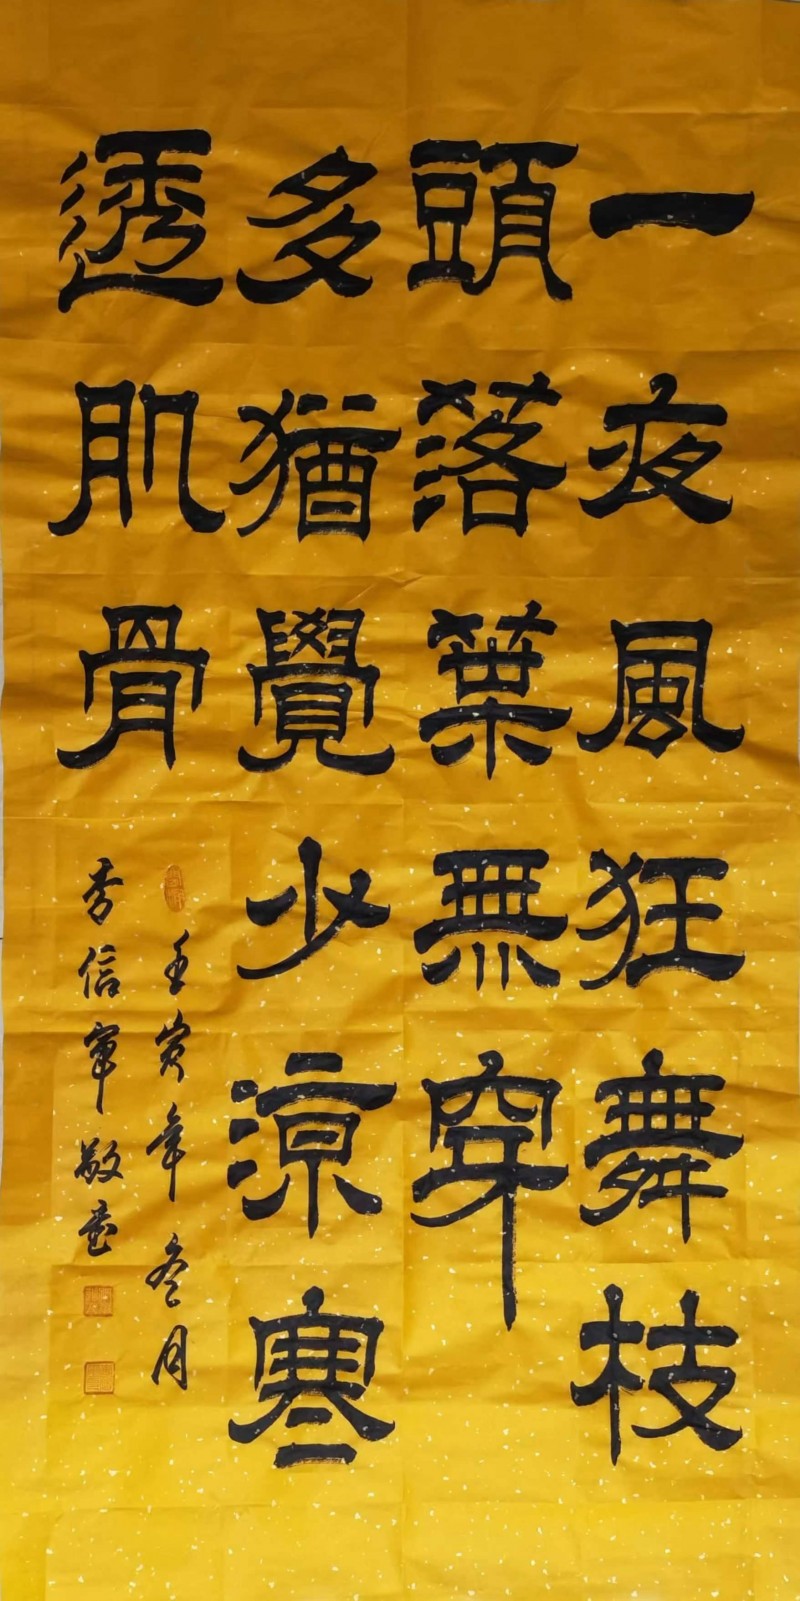 一夜風狂舞枝
頭落葉無穿
多猶覺少涼寒
透肌骨
壬寅年冬月
李信軍敬書